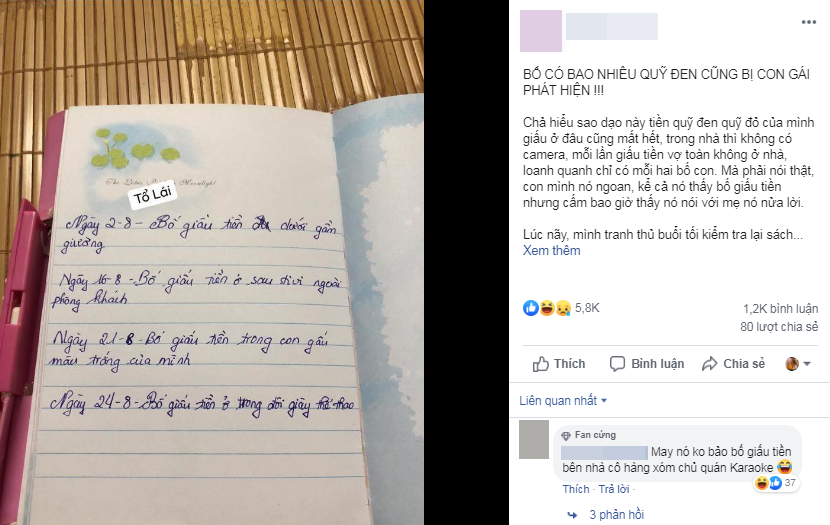 The Little Moonlight
Tổ Lái
Ngày 2-8 - Bố giấu tiền dưới gần
giường
Ngày 16-8 - Bố giấu tiền ở sau tivi ngoài
phòng khách
Ngày 21-8 - Bố giấu tiền trong con gấu
màu trắng của mình
Ngày 24-8 - Bố giấu tiền ở trong đôi giày thể thao
BỐ CÓ BAO NHIÊU QUỸ ĐEN CŨNG BỊ CON GÁI
PHÁT HIỆN !!!
Chả hiểu sao dạo này tiền quỹ đen quỹ đỏ của mình
giấu ở đâu cũng mất hết, trong nhà thì không có
camera, mỗi lần giấu tiền vợ toàn không ở nhà,
loanh quanh chỉ có mỗi hai bố con. Mà phải nói thật,
con mình nó ngoan, kể cả nó thấy bố giấu tiền
nhưng cấm bao giờ thấy nó nói với mẹ nó nửa lời.
Lúc nãy, mình tranh thủ buổi tối kiểm tra lại sách...
Xem thêm
5,8K
1,2K bình luận
80 lượt chia sẻ
Thích
Bình luận
Chia sẻ
Liên quan nhất
Fan cứng
May nó ko bảo bố giấu tiền
bên nhà cô hàng xóm chủ quán Karaoke
37
Thích · Trả lời ·
3 phản hồi